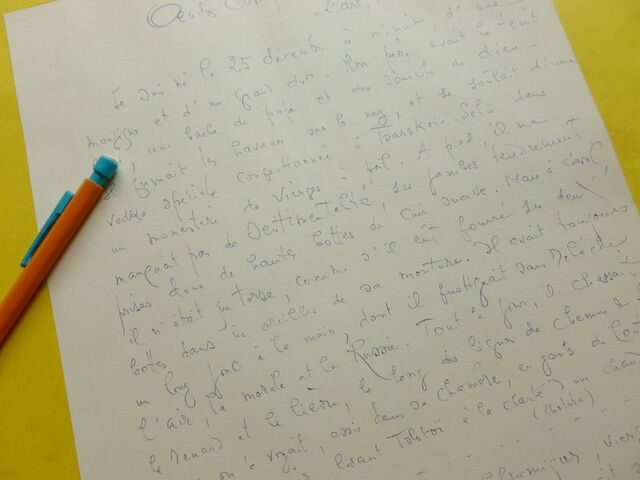 Je suis né le 25 décembre à minuit d'une
et d'un grand duc. Mon père avait le teint
une barbe de pope et des sourcils de dieu.
fumait les havanes sous le nez, et se soûlait d'une
vodka spéciale confectionnée à Tsarskoïé-Selo dans
un monastère de vierges à poil. A pied, il ne
manquait pas de sentimentalité, ses jambes tendrement
prises dans de hautes bottes de cuir suave. Mais à cheval
il n'était que torse, comme s'il eût fourré ses deux
bottes dans les oreilles de sa monture. Il avait toujours
un long jonc à la main, dont il fustigeait sans relâche
l'air, la morale et la Russie. Tout le jour, il chassait
le renard et le lièvre, le long des lignes de chemin de
on le voyait, assis dans sa chambre, en gants de
lisant Tolstoï à la clarté